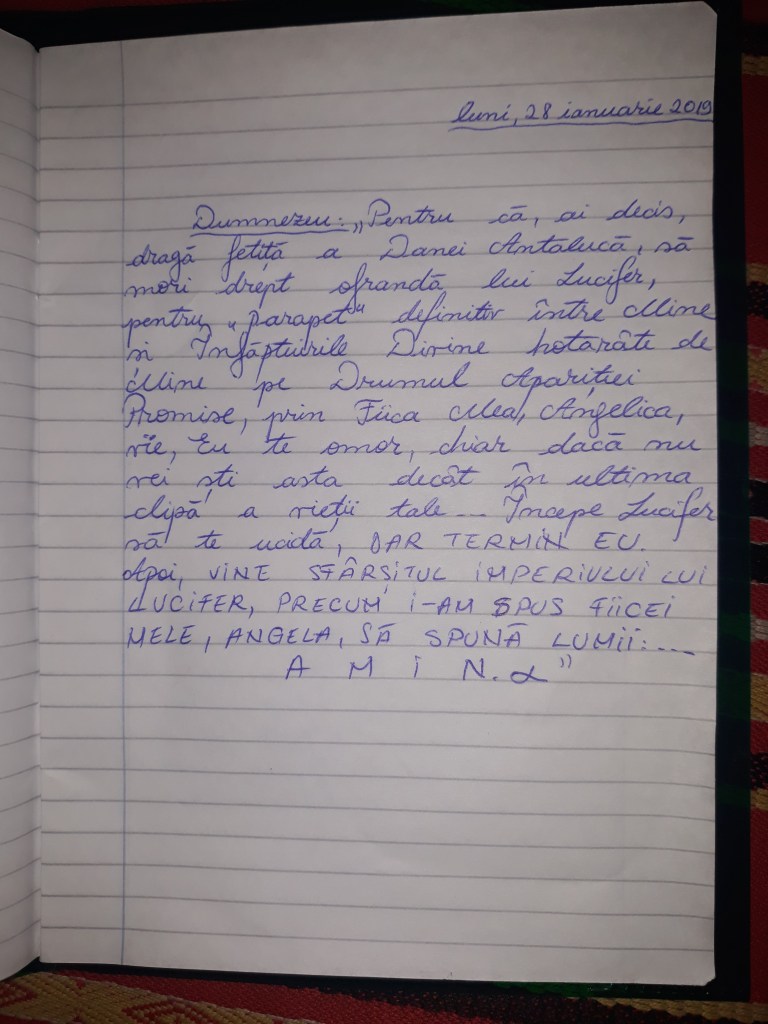 luni, 28 ianuarie 2019
Dumnezeu: „Pentru că, ai decis,
dragă fetiță a Danei Antalucă, să
mori drept ofrandă lui Lucifer,
pentru „parapet" definitiv între Mine
și Înfăptuirile Divine hotarâte de
Mine pe Drumul Apariției
Promise, prin Fiica Mea, Angelica,
vie, Eu te omor, chiar dacă nu
vei ști asta decât în ultima
clipă a vieții tale... Începe Lucifer
să te ucidă, DAR TERMIN EU.
Apoi, VINE SFÂRȘITUL IMPERIULUI LUI
LUCIFER, PRECUM I-AM SPUS FIICEI
MELE, ANGELA, SĂ SPUNĂ LUMII:....
A M I N. α"